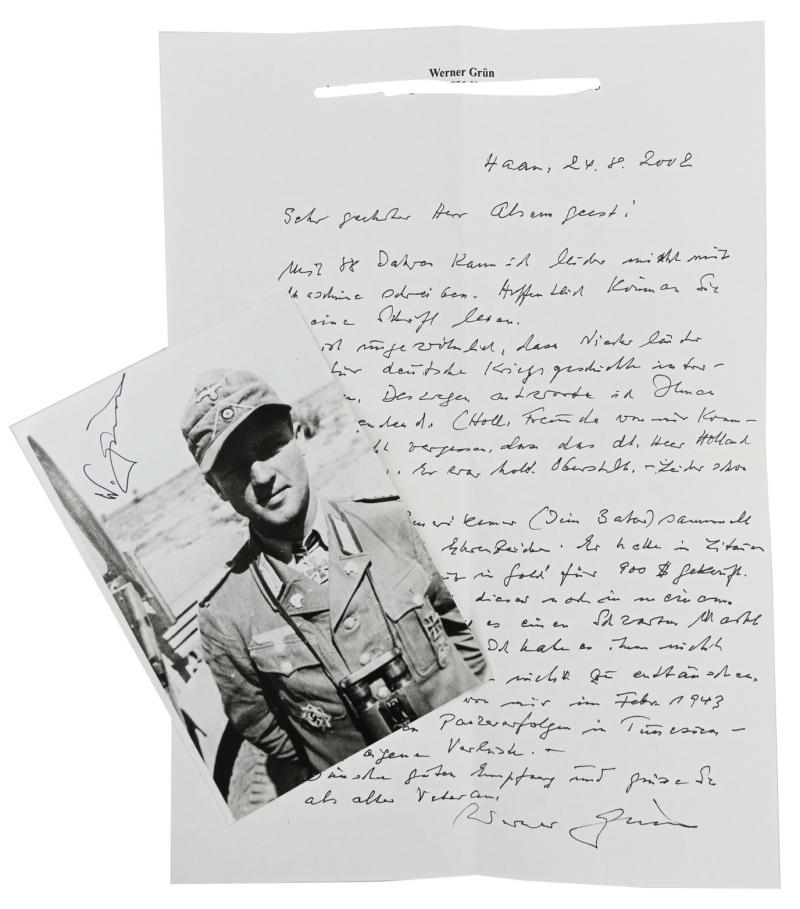 Werner Grün
Haan, 24.8.2002
Sehr geehrter Herr Alsemgeest!
Mit 88 Jahren kann ich leider nicht mit
Maschine schreiben. Hoffentlich können Sie
eine Schrift lesen.
ist ungewöhnlich, dass Niederländer
für deutsche Kriegsgeschichte inter-
Deswegen antworte ich Ihnen
(Holl. Freunde von mir
vergessen, dass das dt. Heer Holland
Er war holl. Oberstlt. - Leider schon
(Dein sammelt
Ehrenzeichen. Er hatte in
in Gold" für 900 $ gekauft.
dieser noch in meinem
es einen Schwarzen Markt
Ich habe es ihm nicht
nicht zu enttäuschen.
von mir im Febr. 1943
Panzererfolgen in Tunesien -
eigene Verluste. -
Wünsche guten Empfang und grüße Sie
als alter Veteran.
Werner Grün
W. Grün